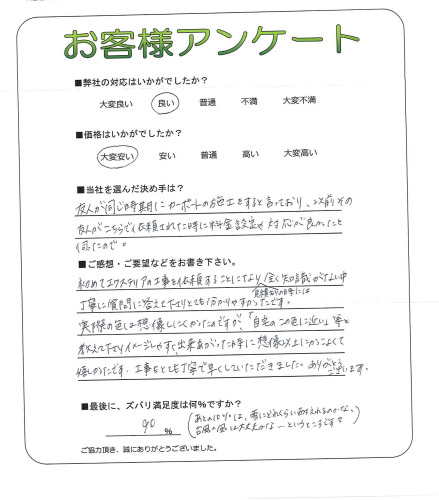 お客様アンケート
■弊社の対応はいかがでしたか？
大変良い 良い 普通 不満 大変不満
■価格はいかがでしたか？
大変安い 安い 普通 高い 大変高い
■当社を選んだ決め手は？
友人が同じ時期にカーポートの施工をすると言っており、以前その
友人がこちらで依頼された時に料金設定や対応が良かったと
伺ったので。
■ご感想・ご要望などをお書き下さい。
初めてエクステリアの工事を依頼することになり、全く知識がない中
見積もりの時には
丁寧に質問に答えて下さりとても分かりやすかったです。
実際の色は想像しにくかったのですが、「自宅のこの色に近い」等と
教えて下さりイメージしやすく、出来あがった時に想像以上にかっこよくて
嬉しかったです。工事もとても丁寧で早くしていただきました。ありがとう
ございます。
■最後に、ズバリ満足度は何％ですか？
90 ％
（あとの10％は、雪にどれくらい耐えれるのかな、
台風の風は大丈夫かな…というところです）
ご協力頂き、誠にありがとうございました。